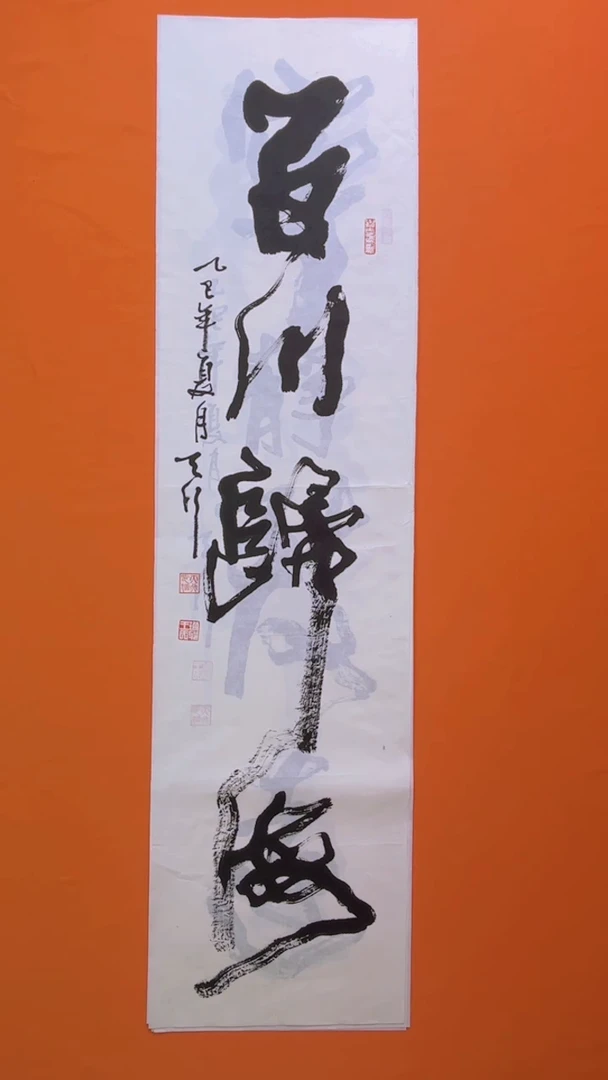 百川歸海
乙巳年夏月